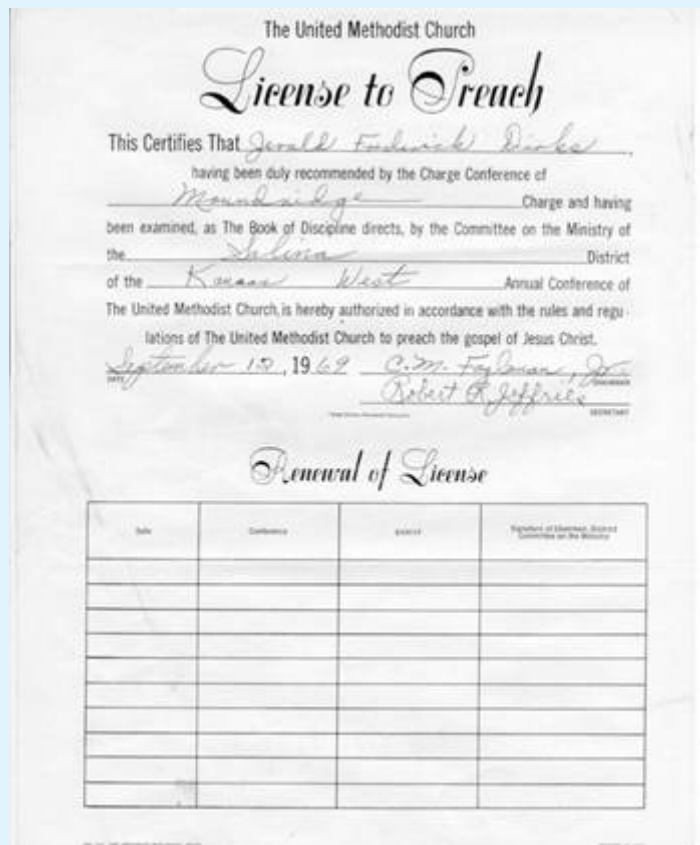 The United Methodist Church
License to Preach
This Certifies That Jerald Frederick Dirks,
having been duly recommended by the Charge Conference of
Moundridge Charge and having
been examined, as The Book of Discipline directs, by the Committee on the Ministry of
the Salina District
of the Kansas West Annual Conference of
The United Methodist Church, is hereby authorized in accordance with the rules and regu-
lations of The United Methodist Church to preach the gospel of Jesus Christ.
September 1969 C. M. Jr.
DATE CHAIRMAN
Robert R. Jeffries
SECRETARY
Renewal of License
Date Conference District Signature of Chairman, District
Committee on the Ministry